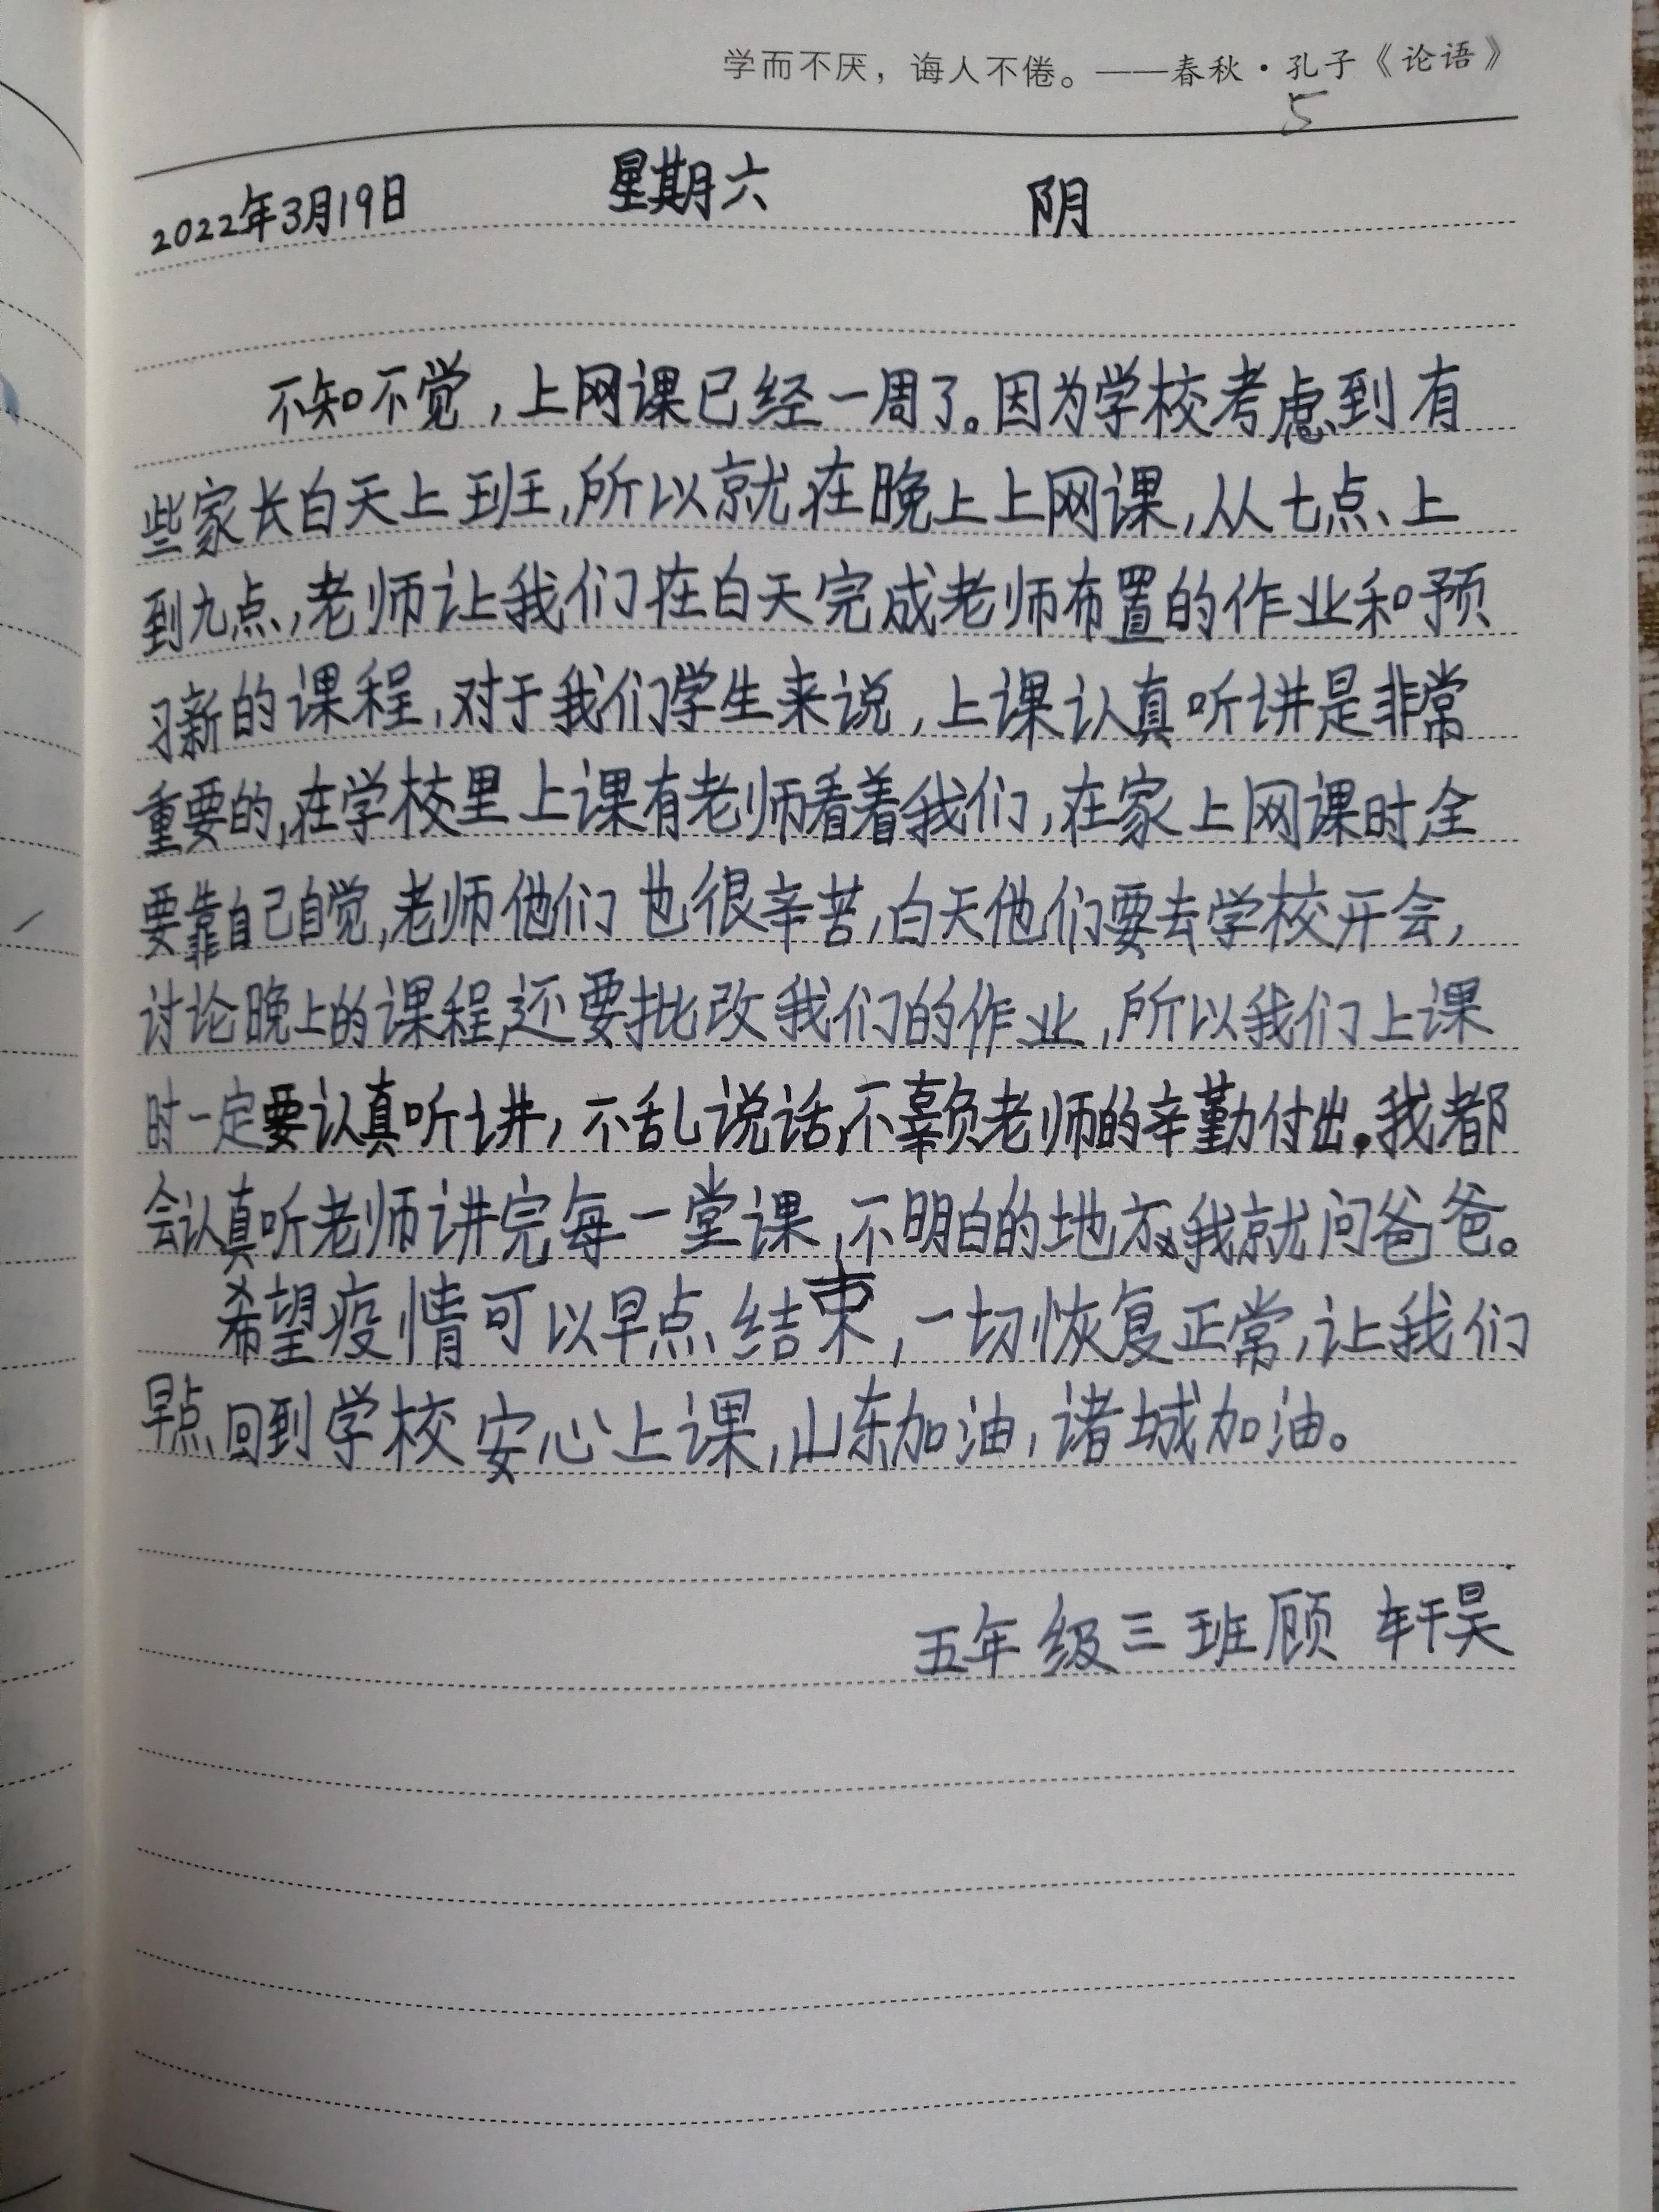 学而不厌，诲人不倦。——春秋·孔子《论语》
5
2022年3月19日 星期六 阴
不知不觉，上网课已经一周了。因为学校考虑到有
些家长白天上班，所以就在晚上上网课，从七点上
到九点，老师让我们在白天完成老师布置的作业和预
习新的课程，对于我们学生来说，上课认真听讲是非常
重要的，在学校里上课有老师看着我们，在家上网课时，全
要靠自己自觉，老师他们也很辛苦，白天他们要去学校开会，
讨论晚上的课程，还要批改我们的作业，所以我们上课
时一定要认真听讲，不乱说话，不辜负老师的辛勤付出。我都
会认真听老师讲完每一堂课，不明白的地方，我就问爸爸。
希望疫情可以早点结束，一切恢复正常，让我们
早点回到学校安心上课，山东加油，诸城加油。
五年级三班顾轩昊